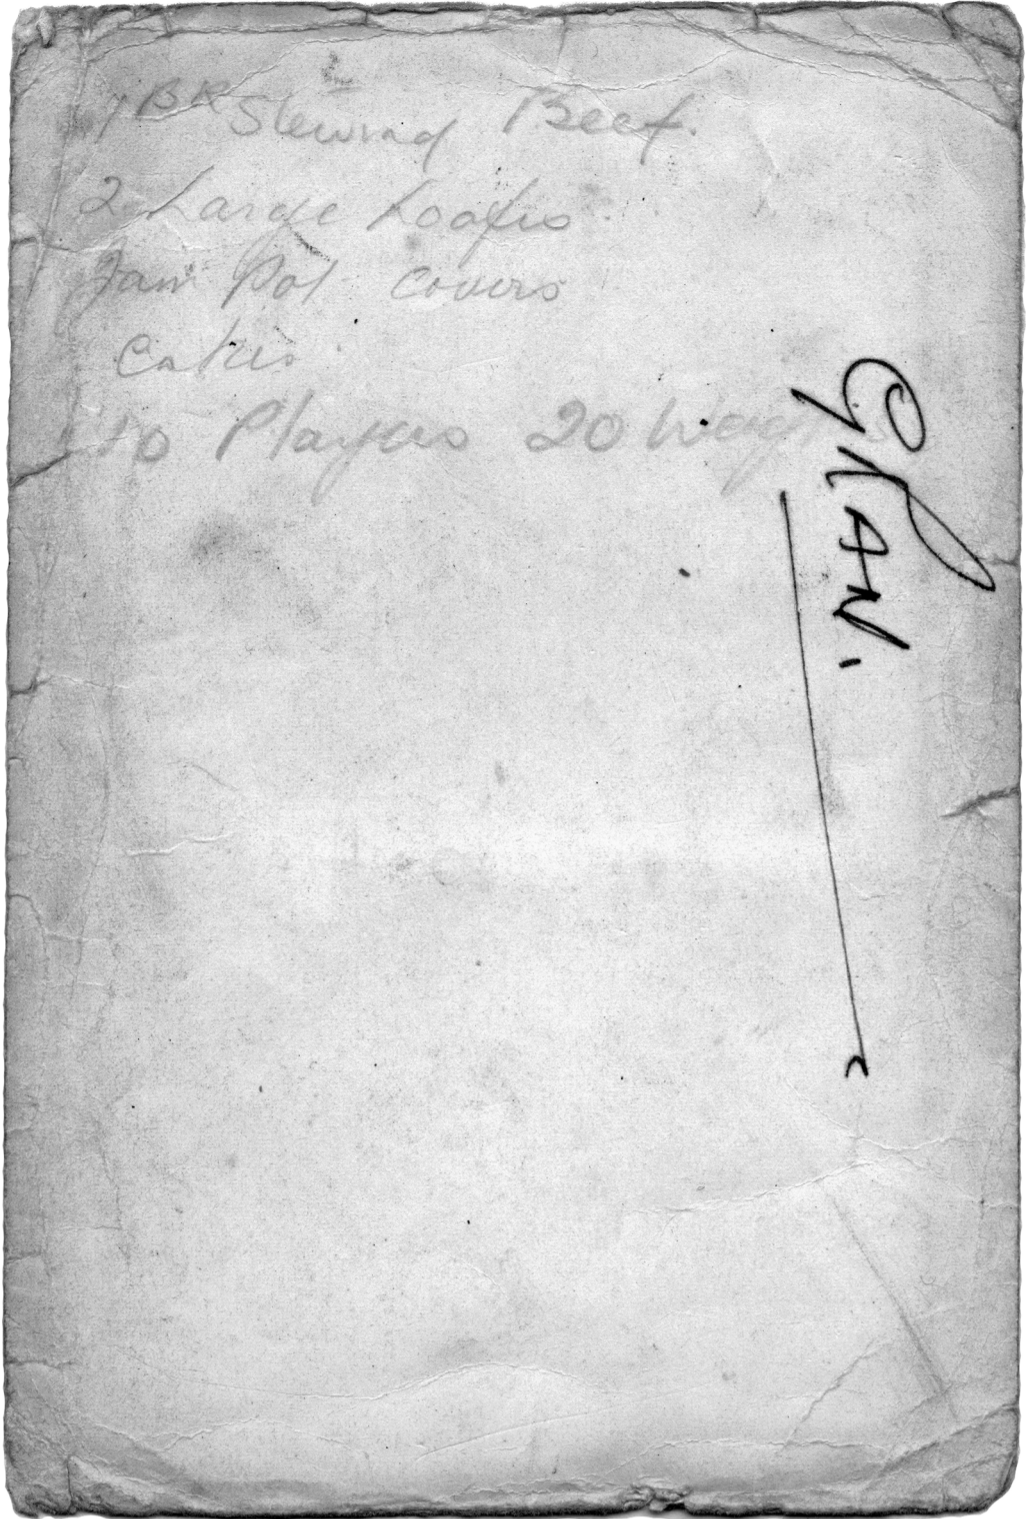 Stewing Beef.
2 Large Loafes
Jam Pot covers
Cakes
10 Players 20 Weights